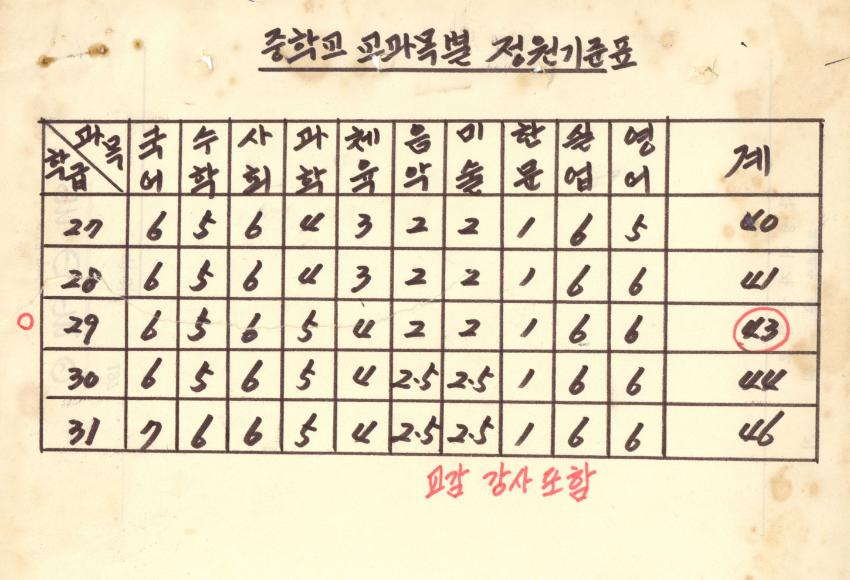 중학교 교과목별 정원기준표
과목 학급 국어 수학 사회 과학 체육 음악 미술 한문 실업 영어 계
27 6 5 6 4 3 2 2 1 6 5 40
28 6 5 6 4 3 2 2 1 6 6 41
29 6 5 6 5 4 2 2 1 6 6 43
30 6 5 6 5 4 2.5 2.5 1 6 6 44
31 7 6 6 5 4 2.5 2.5 1 6 6 46
교감 강사 포함